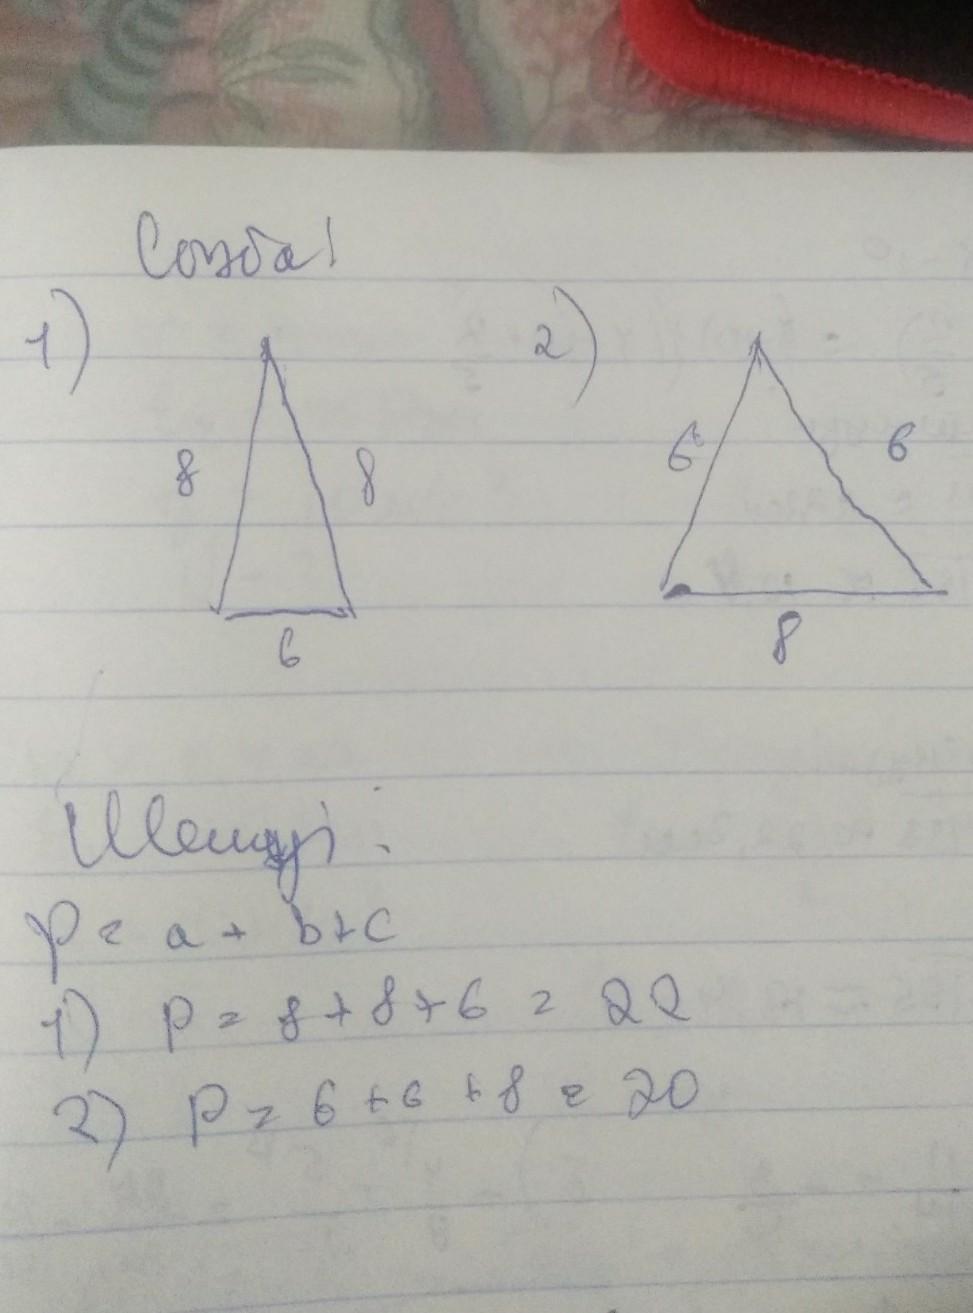 Сызба!
1) 2)
8 8 6 6
6 8
Шешуі:
P = a + b + c
1) P = 8 + 8 + 6 = 22
2) P = 6 + 6 + 8 = 20